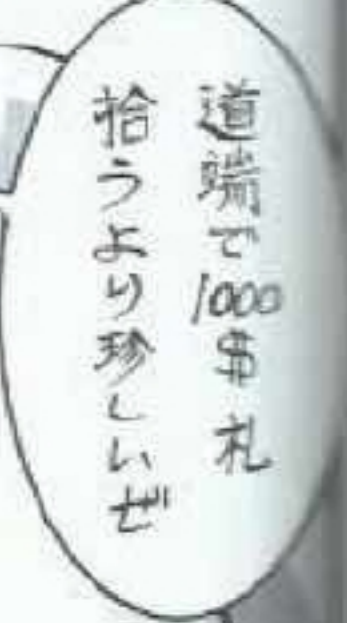 道端で1000$札
拾うより珍しいぜ